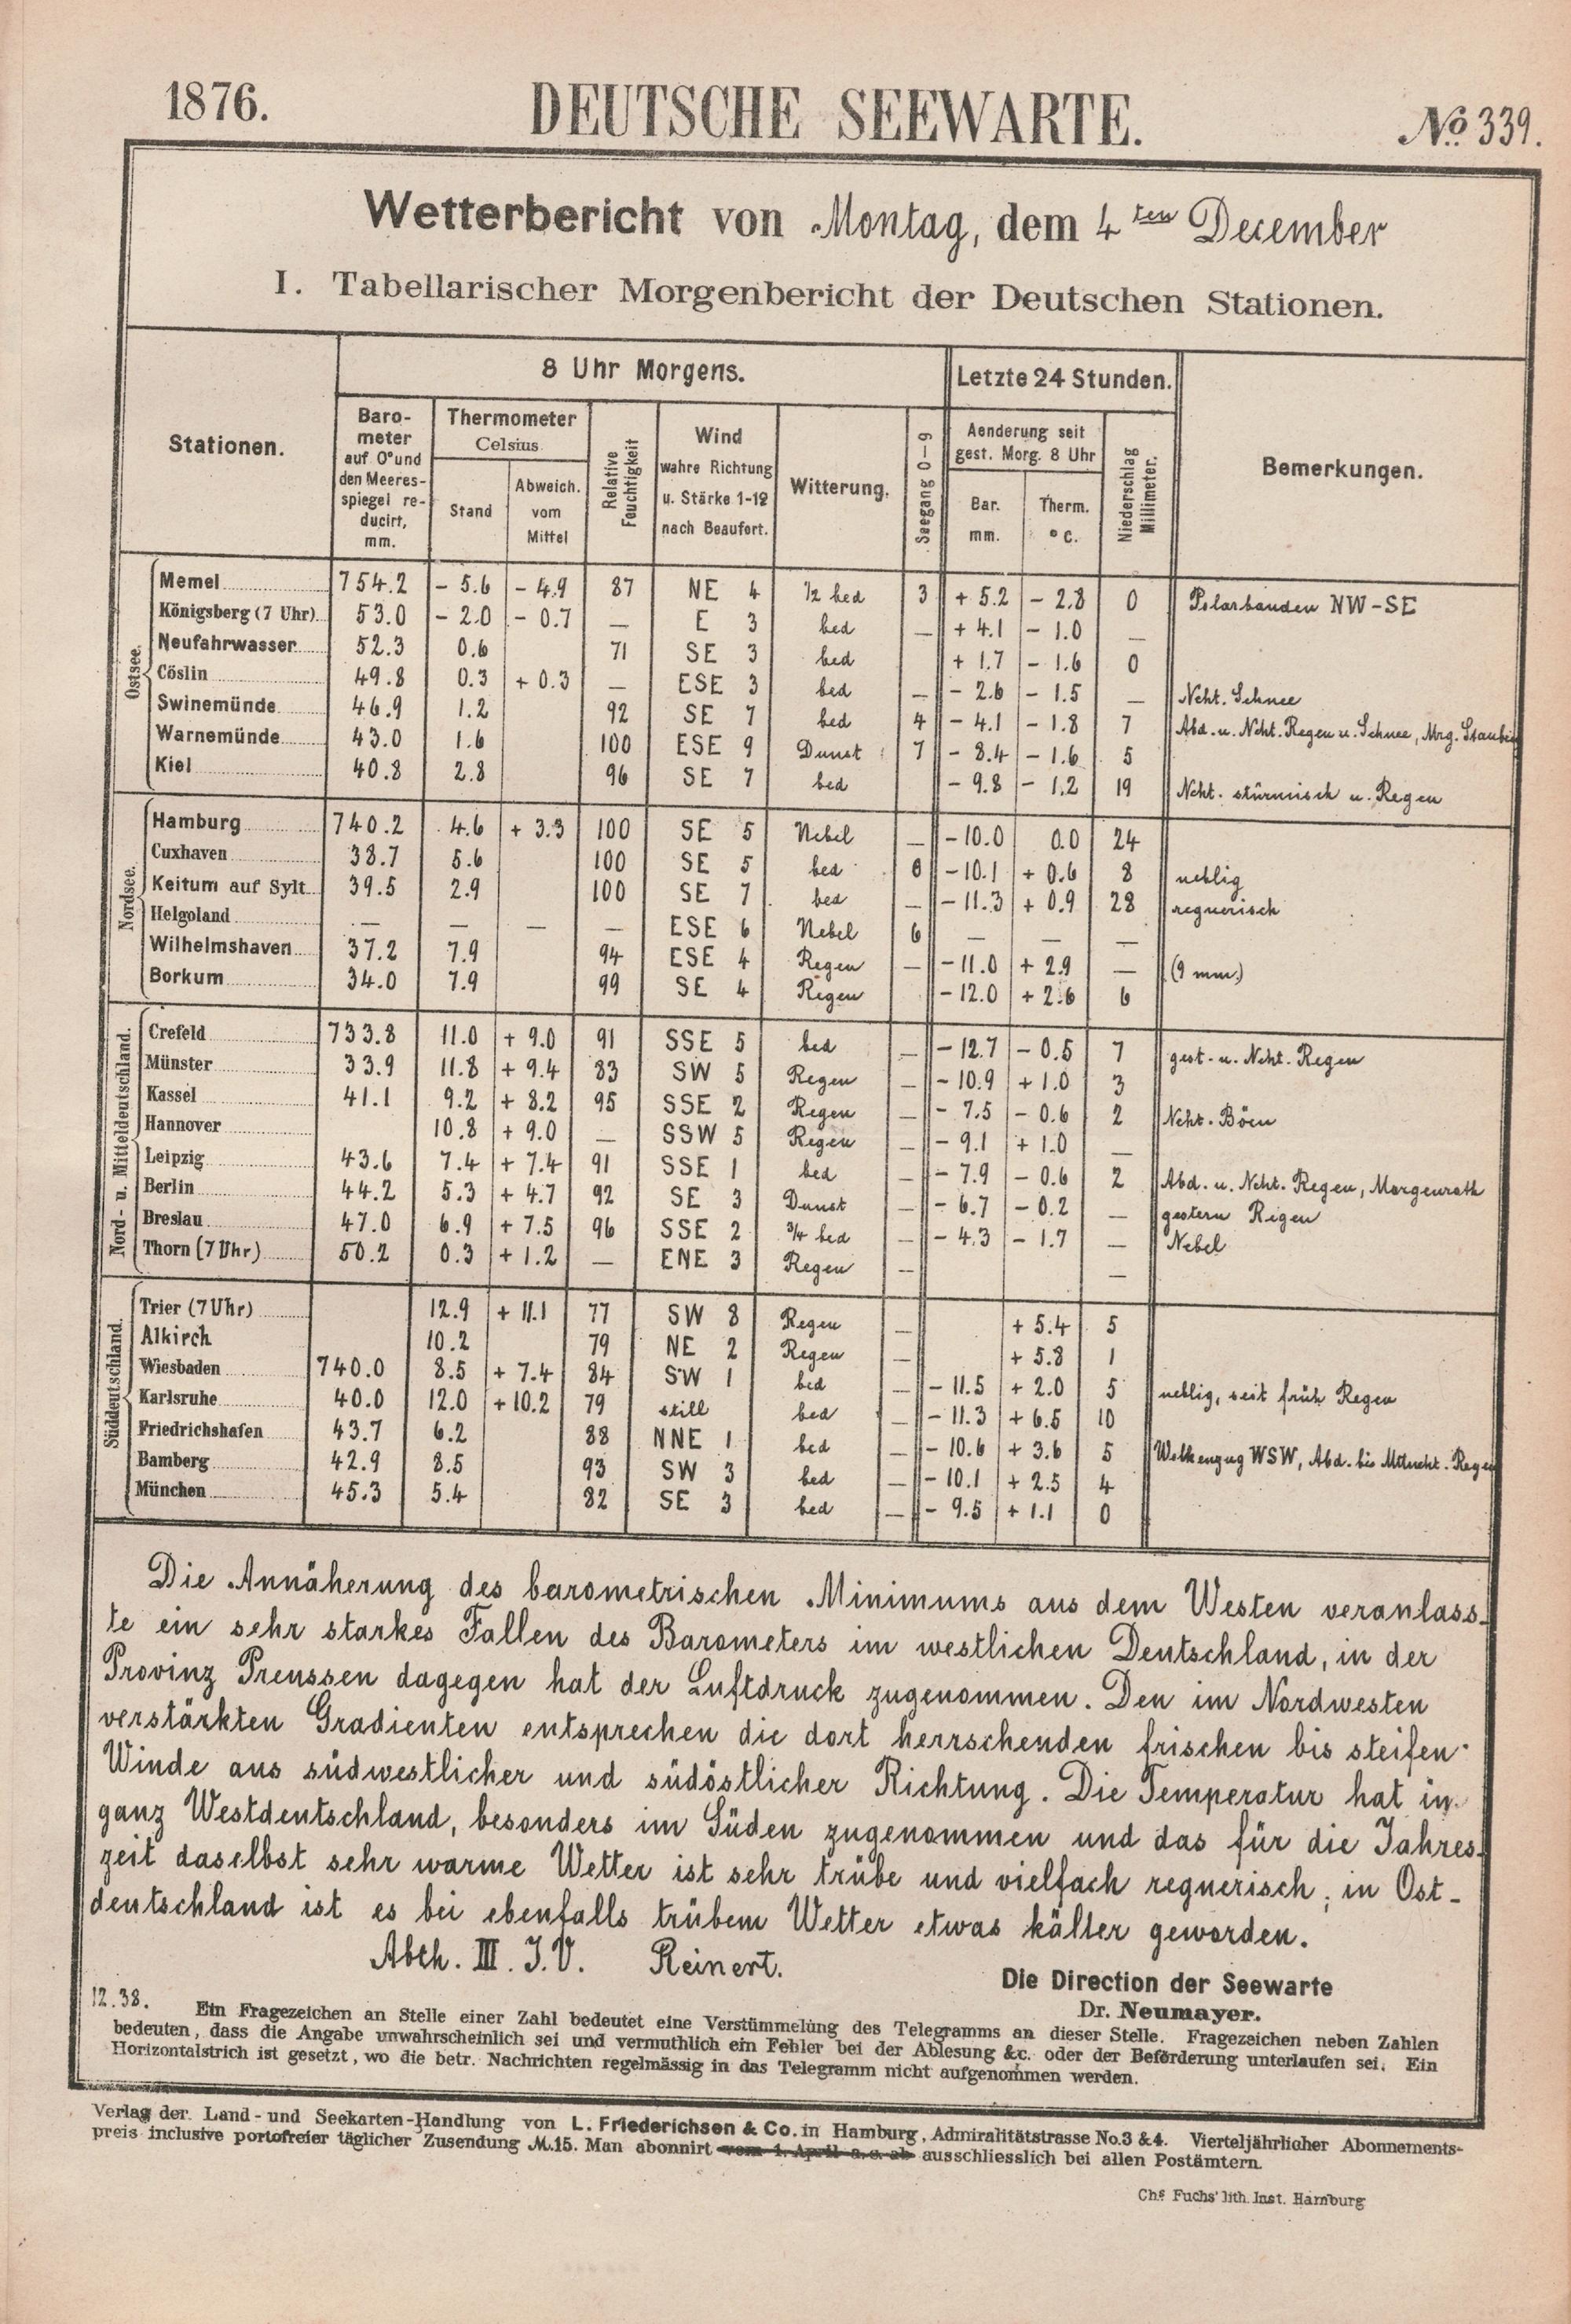 1876. DEUTSCHE SEEWARTE. No. 339.
Wetterbericht von Montag, dem 4ten December
I. Tabellarischer Morgenbericht der Deutschen Stationen.
8 Uhr Morgens. Letzte 24 Stunden.
Stationen. Baro-meter auf 0° und den Meeres-spiegel re-ducirt, mm. Thermometer Celsius. Stand Abweich. vom Mittel Relative Feuchtigkeit Wind wahre Richtung u. Stärke 1-12 nach Beaufort. Witterung. Seegang 0-9 Aenderung seit gest. Morg. 8 Uhr Bar. mm. Therm. ° C. Niederschlag Millimeter. Bemerkungen.
Ostsee.
Memel 754.2 - 5.6 - 4.9 87 NE 4 1/2 bed 3 + 5.2 - 2.8 0 Polarbanden NW-SE
Königsberg (7 Uhr) 53.0 - 2.0 - 0.7 — E 3 bed — + 4.1 - 1.0 —
Neufahrwasser 52.3 0.6 71 SE 3 bed + 1.7 - 1.6 0
Cöslin 49.8 0.3 + 0.3 — ESE 3 bed — - 2.6 - 1.5 — Ncht. Schnee
Swinemünde 46.9 1.2 92 SE 7 bed 4 - 4.1 - 1.8 7 Abd. u. Ncht. Regen u. Schnee, Mrg.
Warnemünde 43.0 1.6 100 ESE 9 Dunst 7 - 8.4 - 1.6 5
Kiel 40.8 2.8 96 SE 7 bed - 9.8 - 1.2 19 Ncht. stürmisch u. Regen
Nordsee.
Hamburg 740.2 4.6 + 3.3 100 SE 5 Nebel — - 10.0 0.0 24
Cuxhaven 38.7 5.6 100 SE 5 bed - 10.1 + 0.6 8 neblig
Keitum auf Sylt 39.5 2.9 100 SE 7 bed — - 11.3 + 0.9 28 regnerisch
Helgoland — — — — ESE 6 Nebel 6 — — —
Wilhelmshaven 37.2 7.9 94 ESE 4 Regen — - 11.0 + 2.9 — (9 mm.)
Borkum 34.0 7.9 99 SE 4 Regen - 12.0 + 2.6 6
Nord- u. Mitteldeutschland.
Crefeld 733.8 11.0 + 9.0 91 SSE 5 bed — - 12.7 - 0.5 7 gest. u. Ncht. Regen
Münster 33.9 11.8 + 9.4 83 SW 5 Regen — - 10.9 + 1.0 3
Kassel 41.1 9.2 + 8.2 95 SSE 2 Regen — - 7.5 - 0.6 2 Ncht. Böen
Hannover 10.8 + 9.0 — SSW 5 Regen — - 9.1 + 1.0 —
Leipzig 43.6 7.4 + 7.4 91 SSE 1 bed — - 7.9 - 0.6 2 Abd. u. Ncht. Regen, Morgenroth
Berlin 44.2 5.3 + 4.7 92 SE 3 Dunst — - 6.7 - 0.2 — gestern Regen
Breslau 47.0 6.9 + 7.5 96 SSE 2 3/4 bed — - 4.3 - 1.7 — Nebel
Thorn (7 Uhr) 50.2 0.3 + 1.2 — ENE 3 Regen — —
Süddeutschland.
Trier (7 Uhr) 12.9 + 11.1 77 SW 8 Regen — + 5.4 5
Alkirch 10.2 79 NE 2 Regen — + 5.8 1
Wiesbaden 740.0 8.5 + 7.4 84 SW 1 bed — - 11.5 + 2.0 5 neblig, seit früh Regen
Karlsruhe 40.0 12.0 + 10.2 79 still bed — - 11.3 + 6.5 10
Friedrichshafen 43.7 6.2 88 NNE 1 bed — - 10.6 + 3.6 5 Wolkenzug WSW, Abd. bis Mttncht. Regen
Bamberg 42.9 8.5 93 SW 3 bed — - 10.1 + 2.5 4
München 45.3 5.4 82 SE 3 bed — - 9.5 + 1.1 0
Die Annäherung des barometrischen Minimums aus dem Westen veranlass-
te ein sehr starkes Fallen des Barometers im westlichen Deutschland, in der
Provinz Preussen dagegen hat der Luftdruck zugenommen. Den im Nordwesten
verstärkten Gradienten entsprechen die dort herrschenden frischen bis steifen
Winde aus südwestlicher und südöstlicher Richtung. Die Temperatur hat in
ganz Westdeutschland, besonders im Süden zugenommen und das für die Jahres-
zeit daselbst sehr warme Wetter ist sehr trübe und vielfach regnerisch, in Ost-
deutschland ist es bei ebenfalls trübem Wetter etwas kälter geworden.
Abth. III. I.V. Reinert.
Die Direction der Seewarte
Dr. Neumayer.
12.38. Ein Fragezeichen an Stelle einer Zahl bedeutet eine Verstümmelung des Telegramms an dieser Stelle. Fragezeichen neben Zahlen
bedeuten, dass die Angabe unwahrscheinlich sei und vermuthlich ein Fehler bei der Ablesung &c. oder der Beförderung unterlaufen sei. Ein
Horizontalstrich ist gesetzt, wo die betr. Nachrichten regelmässig in das Telegramm nicht aufgenommen werden.
Verlag der Land- und Seekarten-Handlung von L. Friederichsen & Co. in Hamburg, Admiralitätstrasse No. 3 & 4. Vierteljährlicher Abonnements-
preis inclusive portofreier täglicher Zusendung M. 15. Man abonnirt vom 1. April a. c. ab ausschliesslich bei allen Postämtern.
Chs. Fuchs' lith. Inst. Hamburg